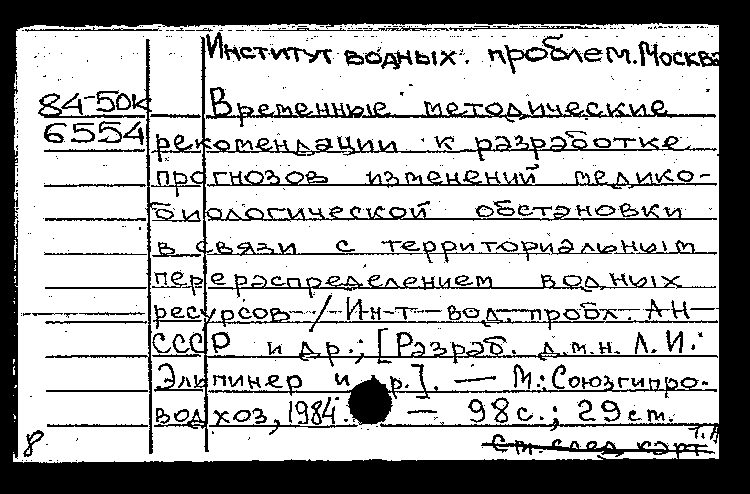 Институт водных. проблем. Москва
84-50к Временные методические
6554 рекомендации к разработке
прогнозов изменений медико-
биологической обстановки
в связи с территориальным
перераспределением водных
ресурсов / Ин-т вод. пробл. АН
СССР и др.; [Разраб. д.м.н. Л. И.
Эльпинер и др.]. — М.: Союзгипро-
водхоз, 1984. — 98 с.; 29 см.
См. след карт
8